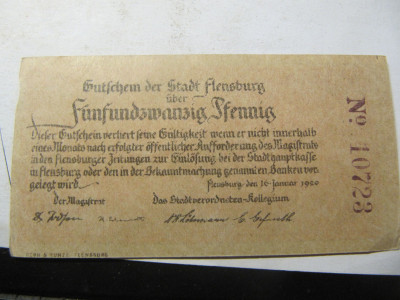 Gutschein der Stadt Flensburg
über
Fünfundzwanzig Pfennig
Dieser Gutschein verliert seine Gültigkeit wenn er nicht innerhalb
eines Monats nach erfolgter öffentlicher Aufforderung des Magistrats
in den Flensburger Zeitungen zur Einlösung bei der Stadthauptkasse
in Flensburg oder den in der Bekanntmachung genannten Banken vor-
gelegt wird.
Flensburg, den 16. Januar 1920
der Magistrat Das Stadtverordneten-Kollegium
No. 10723